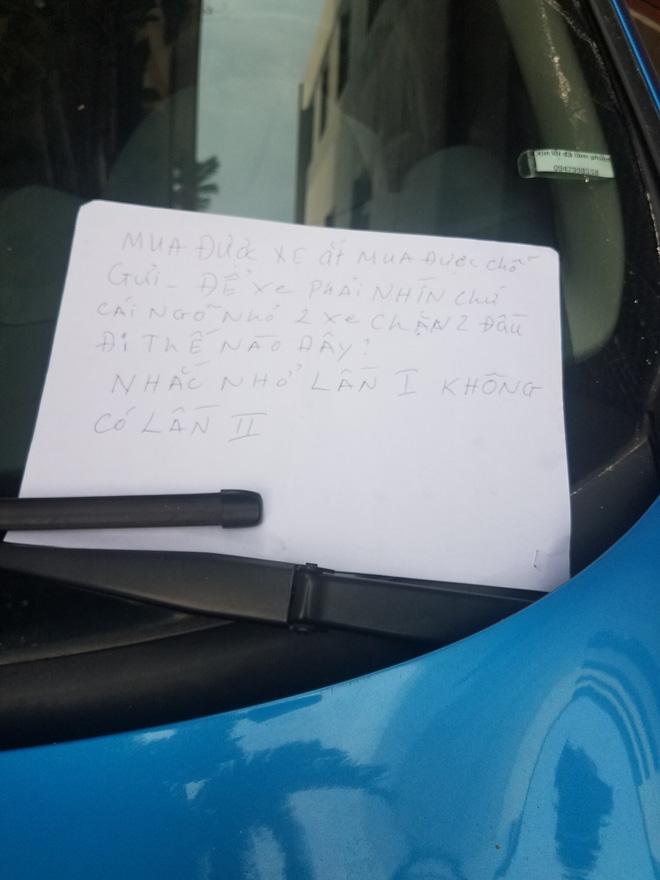 xin lỗi đã làm phiền
0942998558
MUA ĐƯỢC XE ắt MUA ĐƯỢC chỗ
Gửi - ĐỂ xe PHẢI NHÌN chứ
CÁI NGÕ Nhỏ 2 xe CHẶN 2 Đầu
Đi THẾ NÀO ĐÂY?
NHẮC NHỞ LẦN I KHÔNG
CÓ LẦN II